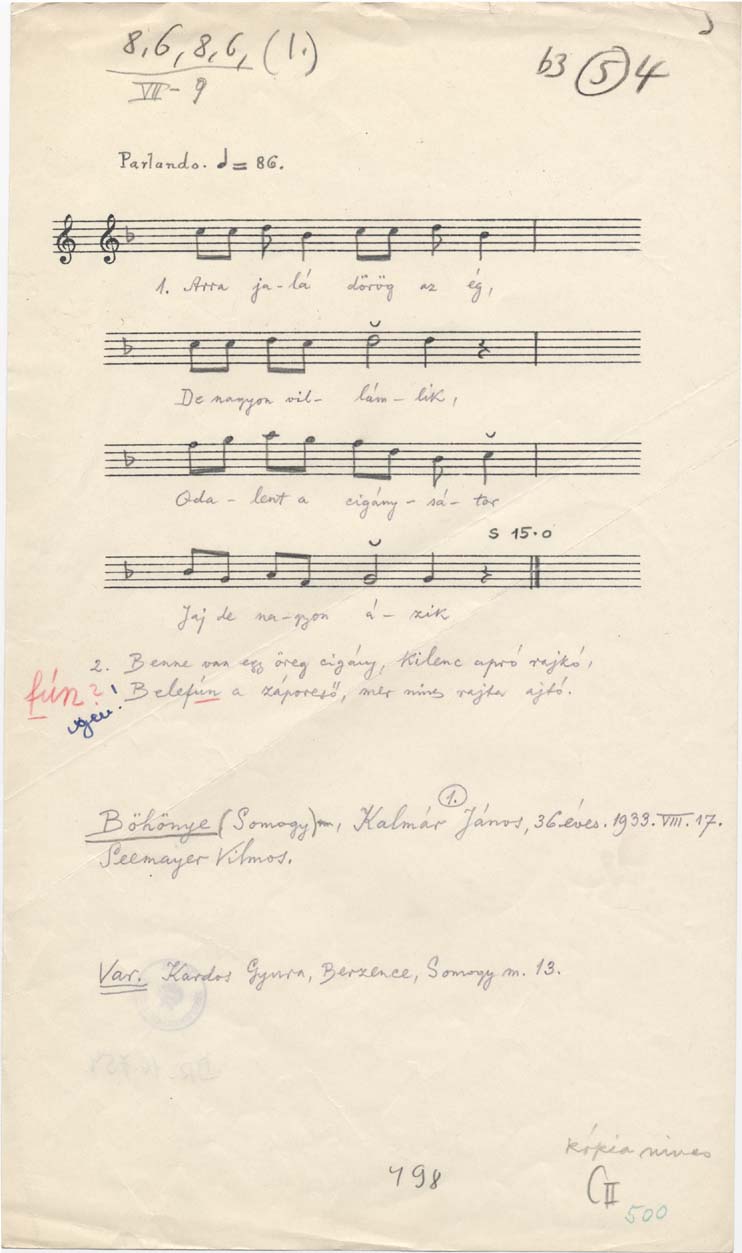 8, 6, 8, 6, (1.)
VII - 9
b3 (5) 4
Parlando. ♩ = 86.
1. Arra ja-lá dörög az ég,
De nagyon vil- lám- lik,
Oda - lent a cigány - sá - tor
S 15.0
Jaj de na-gyon á - zik
2. Benne van egy öreg cigány, kilenc apró rajkó,
fún? Belefún a záporeső, mer nincs rajta ajtó.
igen!
1.
Böhönye (Somogy) m, Kalmár János, 36 éves. 1933. VIII. 17.
Seemayer Vilmos.
Var. Kardos Gyura, Berzence, Somogy m. 13.
kópia nincs
498
C II
500